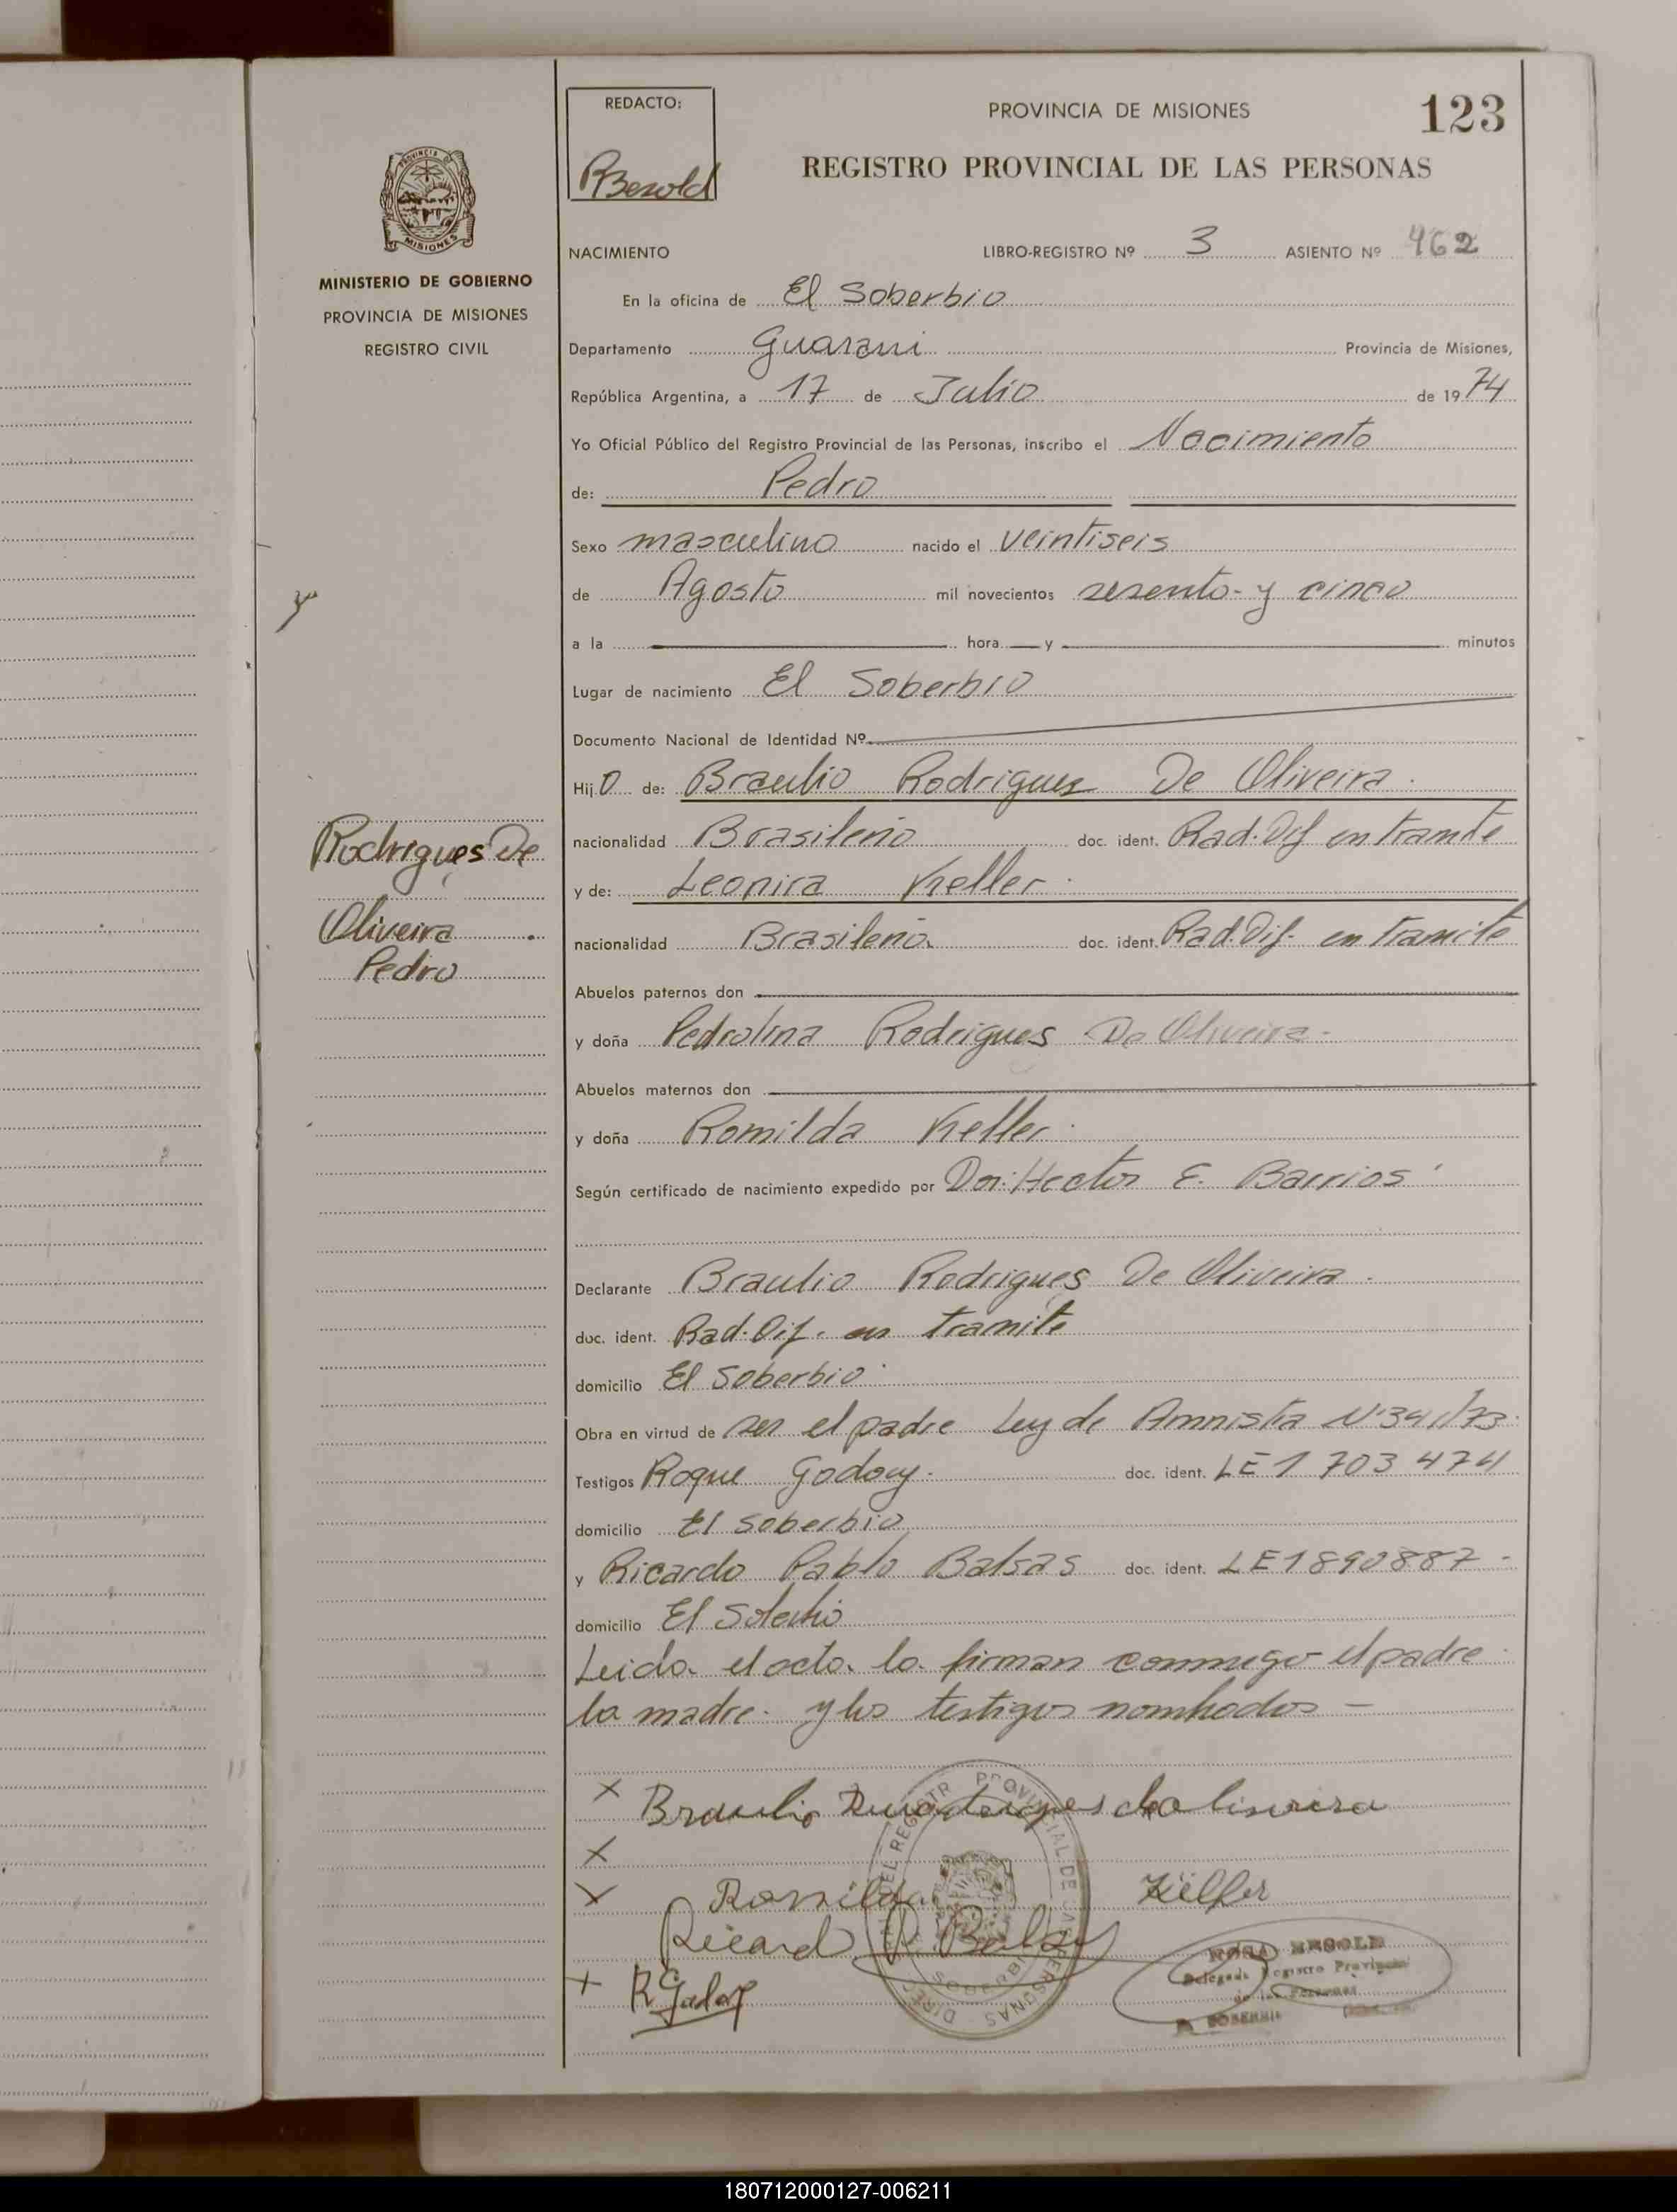 REDACTO:
RBesold
PROVINCIA DE MISIONES
123
REGISTRO PROVINCIAL DE LAS PERSONAS
PROVINCIA DE
MISIONES
MINISTERIO DE GOBIERNO
PROVINCIA DE MISIONES
REGISTRO CIVIL
NACIMIENTO LIBRO-REGISTRO Nº 3 ASIENTO Nº 462
En la oficina de El Soberbio
Departamento Guarani Provincia de Misiones,
República Argentina, a 17 de Julio de 1974
Yo Oficial Público del Registro Provincial de las Personas, inscribo el Nacimiento
de: Pedro
Sexo masculino nacido el veintiseis
de Agosto mil novecientos sesenta y cinco
a la hora y minutos
Lugar de nacimiento El Soberbio
Documento Nacional de Identidad Nº
Hijo de: Braulio Rodrigues De Oliveira
nacionalidad Brasileño doc. ident. Rad. Dif en tramite
y de: Leonira Keller
nacionalidad Brasileña doc. ident. Rad. Dif. en tramite
Rodrigues De
Oliveira
Pedro
Abuelos paternos don
y doña Pedrolina Rodrigues De Oliveira
Abuelos maternos don
y doña Romilda Keller
Según certificado de nacimiento expedido por Dr. Hector E. Barrios
Declarante Braulio Rodrigues De Oliveira
doc. ident. Rad. Dif. en tramite
domicilio El Soberbio
Obra en virtud de ser el padre Ley de Amnistia Nº 341/73
Testigos Roque Godoy doc. ident. LE 1 703 474
domicilio El Soberbio
y Ricardo Pablo Balsas doc. ident. LE 1890887
domicilio El Soberbio
Leida el acta la firman conmigo el padre
la madre y los testigos nombrados
X Braulio
X
X Romilda
Ricard P. Balsas
+ RGodoy
ROSA BESOLD
Delegada Registro Provincial
de las Personas
EL SOBERBIO
180712000127-006211